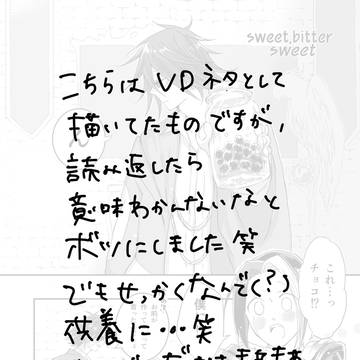 sweet,bitter
sweet
こちらは VDネタとして
描いてたものですが、
読み返したら
意味わかんないなと
ボツにしました笑
でもせっかくなんで(?)
供養に…笑
これ…っ
チョコ!?